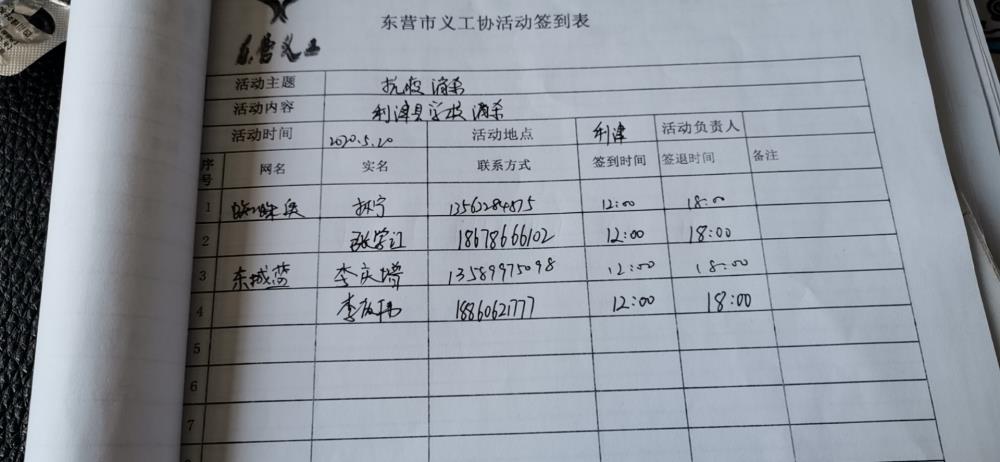 东营市义工协活动签到表
东营义工
活动主题 抗疫 消杀
活动内容 利津县学校消杀
活动时间 2020.5.20 活动地点 利津 活动负责人
序号 网名 实名 联系方式 签到时间 签退时间 备注
1 蜘蛛侠 13563284875 12:00 18:00
2 18678666102 12:00 18:00
3 东城蓝 李庆增 13589975098 12:00 18:00
4 18860621777 12:00 18:00
5
6
7